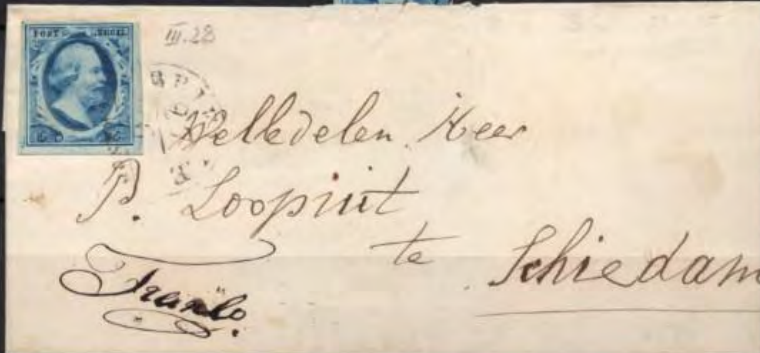 POST ZEGEL
III.28
Weledelen Heer
P. Loopuit
te Schiedam
Franco.